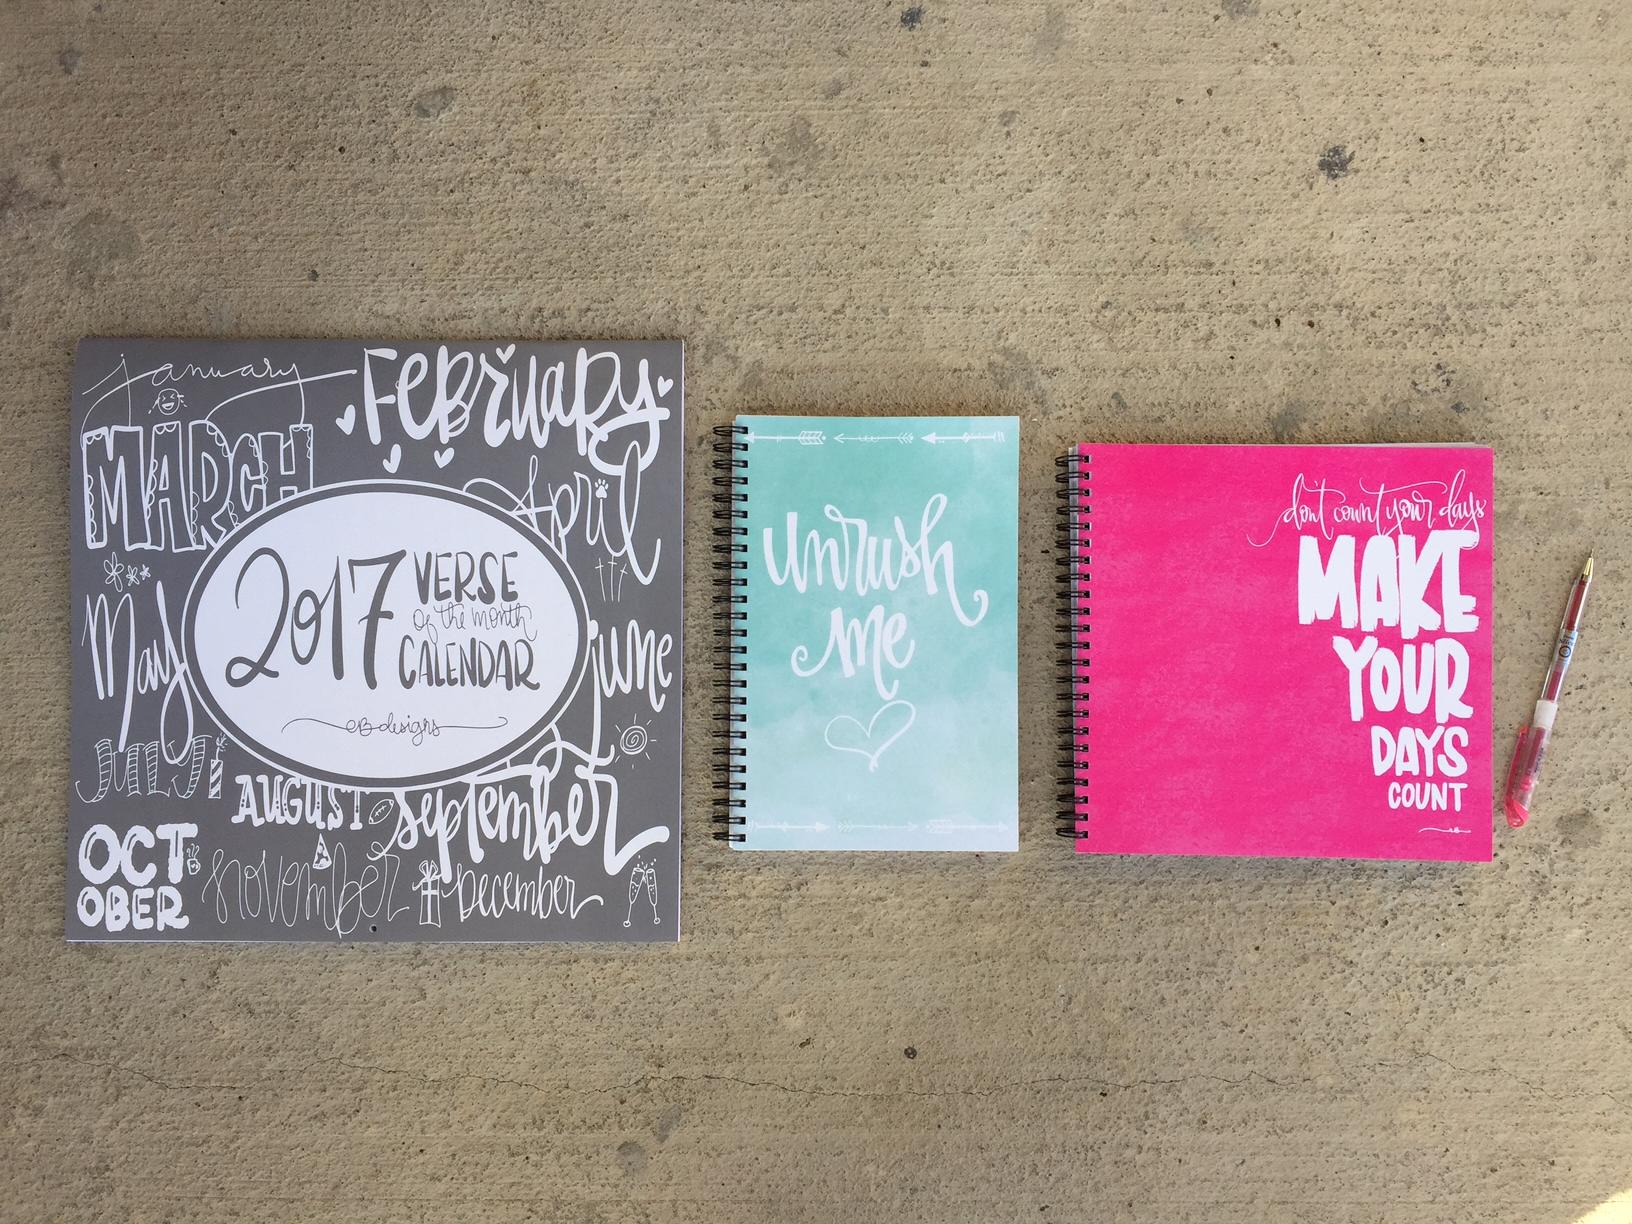 january
FEBRUARY
MARCH
April
2017 VERSE
of the month
CALENDAR
eBdesigns
May
june
JULY
AUGUST
september
OCT
OBER
november
December
unrush
me
don't count your days
MAKE
YOUR
DAYS
COUNT